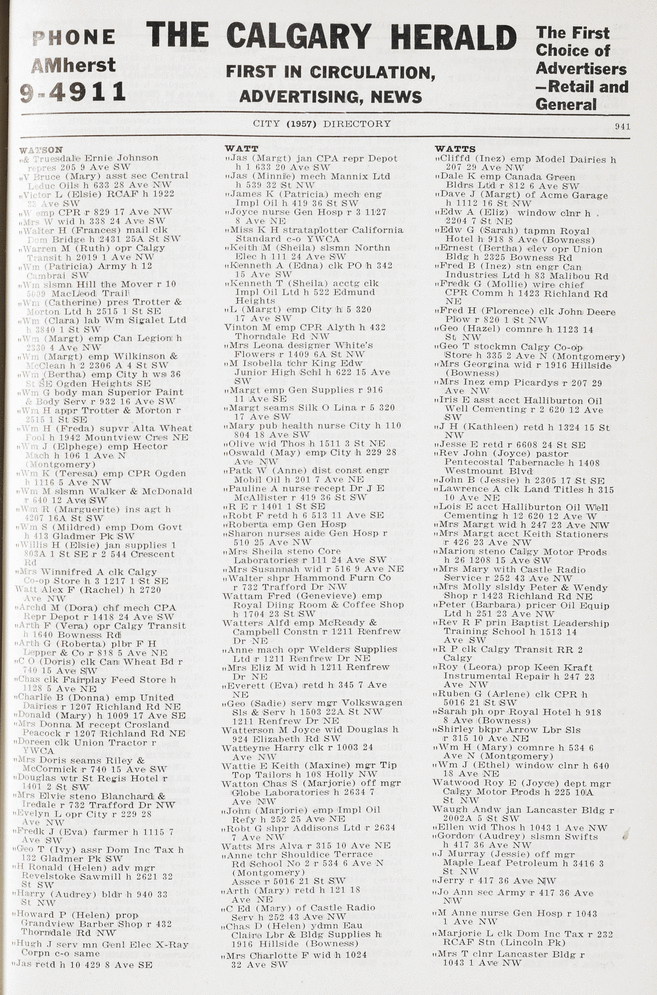 PHONE
AMherst
9-4911
THE CALGARY HERALD
FIRST IN CIRCULATION,
ADVERTISING, NEWS
The First
Choice of
Advertisers
—Retail and
General
CITY (1957) DIRECTORY
941
WATSON
„& Truesdale Ernie Johnson
repres 205 9 Ave SW
„V Bruce (Mary) asst sec Central
Leduc Oils h 633 28 Ave NW
„Victor L (Elsie) RCAF h 1922
Ave SW
„W emp CPR r 829 17 Ave NW
„Mrs W wid h 338 24 Ave SW
„Walter H (Frances) mail clk
Dom Bridge h 2431 25A St SW
„Warren M (Ruth) opr Calgy
Transit h 2019 1 Ave NW
„Wm (Patricia) Army h 12
Cambrai SW
„Wm slsmn Hill the Mover r 10
5009 MacLeod Trail
„Wm (Catherine) pres Trotter &
Morton Ltd h 2515 1 St SE
„Wm (Clara) lab Wm Sigalet Ltd
h 3840 1 St SW
„Wm (Margt) emp Can Legion h
2330 4 Ave NW
„Wm (Margt) emp Wilkinson &
McClean h 2 2306 A 4 St SW
„Wm (Bertha) emp City h ws 36
St SE Ogden Heights SE
„Wm G body man Superior Paint
& Body Serv r 932 16 Ave SW
„Wm H appr Trotter & Morton r
2515 1 St SE
„Wm H (Freda) supvr Alta Wheat
Pool h 1942 Mountview Cres NE
„Wm J (Elphege) emp Hector
Mach h 106 1 Ave N
(Montgomery)
„Wm K (Teresa) emp CPR Ogden
h 1116 5 Ave NW
„Wm M slsmn Walker & McDonald
r 640 12 Ave SW
„Wm R (Marguerite) ins agt h
4207 16A St SW
„Wm S (Mildred) emp Dom Govt
h 413 Gladmer Pk SW
„Willis H (Elsie) jan supplies 1
803A 1 St SE r 2 544 Crescent
Rd
„Mrs Winnifred A clk Calgy
Co-op Store h 3 1217 1 St SE
Watt Alex F (Rachel) h 2720
Ave NW
„Archd M (Dora) chf mech CPA
Repr Depot r 1418 24 Ave SW
„Arth F (Vera) opr Calgy Transit
h 1640 Bowness Rd
„Arth G (Roberta) plbr F H
Lepper & Co r 818 5 Ave NE
„C O (Doris) clk Can Wheat Bd r
740 15 Ave SW
„Chas clk Fairplay Feed Store h
1128 5 Ave NE
„Charlie B (Donna) emp United
Dairies r 1207 Richland Rd NE
„Donald (Mary) h 1009 17 Ave SW
„Mrs Donna M recept Crosland
Peacock r 1207 Richland Rd NE
„Doreen clk Union Tractor r
YWCA
„Mrs Doris seams Riley &
McCormick r 740 15 Ave SW
„Douglas wtr St Regis Hotel r
1401 2 St SW
„Mrs Elvie steno Blanchard &
Iredale r 732 Trafford Dr NW
„Evelyn L opr City r 229 28
Ave NW
„Fredk J (Eva) farmer h 1115 7
Ave SW
„Geo T (Ivy) assr Dom Inc Tax h
132 Gladmer Pk SW
„H Ronald (Helen) adv mgr
Revelstoke Sawmill h 2621 32
St SW
„Harry (Audrey) bldr h 940 33
St NW
„Howard P (Helen) prop
Grandview Barber Shop r 432
Thorndale Rd NW
„Hugh J serv mn Genl Elec X-Ray
Corpn c-o same
„Jas retd h 10 429 8 Ave SE
WATT
„Jas (Margt) jan CPA repr Depot
h 1 633 20 Ave SW
„Jas (Minnie) mech Mannix Ltd
h 539 32 St NW
„James K (Patricia) mech eng
Impl Oil h 419 36 St SW
„Joyce nurse Gen Hosp r 3 1127
8 Ave NE
„Miss K H strataplotter California
Standard c-o YWCA
„Keith M (Sheila) slsmn Northn
Elec h 111 24 Ave SW
„Kenneth A (Edna) clk PO h 342
15 Ave SW
„Kenneth T (Sheila) acctg clk
Impl Oil Ltd h 522 Edmund
Heights
„L (Margt) emp City h 5 320
17 Ave SW
Vinton M emp CPR Alyth h 432
Thorndale Rd NW
„Mrs Leona designer White's
Flowers r 1409 6A St NW
„M Isobella tchr King Edw
Junior High Schl h 622 15 Ave
SW
„Margt emp Gen Supplies r 916
11 Ave SE
„Margt seams Silk O Lina r 5 320
17 Ave SW
„Mary pub health nurse City h 110
804 18 Ave SW
„Olive wid Thos h 1511 3 St NE
„Oswald (May) emp City h 229 28
Ave NW
„Patk W (Anne) dist const engr
Mobil Oil h 201 7 Ave NE
„Pauline A nurse recept Dr J E
McAllister r 419 36 St SW
„R E r 1401 1 St SE
„Robt F retd h 6 513 11 Ave SE
„Roberta emp Gen Hosp
„Sharon nurses aide Gen Hosp r
510 25 Ave NW
„Mrs Sheila steno Core
Laboratories r 111 24 Ave SW
„Mrs Susannah wid r 516 9 Ave NE
„Walter shpr Hammond Furn Co
r 732 Trafford Dr NW
Wattam Fred (Genevieve) emp
Royal Diing Room & Coffee Shop
h 1704 23 St SW
Watters Alfd emp McCready &
Campbell Constn r 1211 Renfrew
Dr NE
„Anne mach opr Welders Supplies
Ltd r 1211 Renfrew Dr NE
„Mrs Eliz M wid h 1211 Renfrew
Dr NE
„Everett (Eva) retd h 345 7 Ave
NE
„Geo (Sadie) serv mgr Volkswagen
Sls & Serv h 1503 22A St NW
1211 Renfrew Dr NE
Watterson M Joyce wid Douglas h
924 Elizabeth Rd SW
Watteyne Harry clk r 1003 24
Ave NW
Wattie E Keith (Maxine) mgr Tip
Top Tailors h 108 Holly NW
Watton Chas S (Marjorie) off mgr
Globe Laboratories h 2634 7
Ave NW
„John (Marjorie) emp Impl Oil
Refy h 252 25 Ave NE
„Robt G shpr Addisons Ltd r 2634
7 Ave NW
Watts Mrs Alva r 315 10 Ave NE
„Anne tchr Shouldice Terrace
Rd School No 2 r 534 6 Ave N
(Montgomery)
Assce r 5016 21 St SW
„Arth (Mary) retd h 121 18
Ave NE
„C Ed (Mary) of Castle Radio
Serv h 252 43 Ave NW
„Chas D (Helen) ydmn Eau
Claire Lbr & Bldg Supplies h
1916 Hillside (Bowness)
„Mrs Charlotte F wid h 1024
32 Ave SW
WATTS
„Cliffd (Inez) emp Model Dairies h
207 29 Ave NW
„Dale K emp Canada Green
Bldrs Ltd r 812 6 Ave SW
„Dave J (Margt) of Acme Garage
h 1112 16 St NW
„Edw A (Eliz) window clnr h
2204 7 St NE
„Edw G (Sarah) tapmn Royal
Hotel h 918 8 Ave (Bowness)
„Ernest (Bertha) elev opr Union
Bldg h 2325 Bowness Rd
„Fred B (Inez) stn engr Can
Industries Ltd h 83 Malibou Rd
„Fredk G (Mollie) wire chief
CPR Comm h 1423 Richland Rd
NE
„Fred H (Florence) clk John Deere
Plow r 820 1 St NW
„Geo (Hazel) comnre h 1123 14
St NW
„Geo T stockmn Calgy Co-op
Store h 335 2 Ave N (Montgomery)
„Mrs Georgina wid r 1916 Hillside
(Bowness)
„Mrs Inez emp Picardys r 207 29
Ave NW
„Iris E asst acct Haliburton Oil
Well Cementing r 2 620 12 Ave
SW
„J H (Kathleen) retd h 1324 15 St
NW
„Jesse E retd r 6608 24 St SE
„Rev John (Joyce) pastor
Pentecostal Tabernacle h 1408
Westmount Blvd
„John B (Jessie) h 2305 17 St SE
„Lawrence A clk Land Titles h 315
10 Ave NE
„Lois E acct Halliburton Oil Well
Cementing h 12 620 12 Ave W
„Mrs Margt wid h 247 23 Ave NW
„Mrs Margt acct Keith Stationers
r 426 23 Ave NW
„Marion steno Calgy Motor Prods
h 26 1208 15 Ave SW
„Mrs Mary with Castle Radio
Service r 252 43 Ave NW
„Mrs Molly slsldy Peter & Wendy
Shop r 1423 Richland Rd NE
„Peter (Barbara) pricer Oil Equip
Ltd h 251 23 Ave NW
„Rev R F prin Baptist Leadership
Training School h 1513 14
Ave SW
„R P clk Calgy Transit RR 2
Calgy
„Roy (Leora) prop Keen Kraft
Instrumental Repair h 247 23
Ave NW
„Ruben G (Arlene) clk CPR h
5016 21 St SW
„Sarah ph opr Royal Hotel h 918
8 Ave (Bowness)
„Shirley bkpr Arrow Lbr Sls
r 315 10 Ave NE
„Wm H (Mary) comnre h 534 6
Ave N (Montgomery)
„Wm J (Ethel) window clnr h 640
18 Ave NE
Watwood Roy E (Joyce) dept mgr
Calgy Motor Prods h 225 10A
St NW
Waugh Andw jan Lancaster Bldg r
2002A 5 St SW
„Ellen wid Thos h 1043 1 Ave NW
„Gordon (Audrey) slsmn Swifts
h 417 36 Ave NW
„J Murray (Jessie) off mgr
Maple Leaf Petroleum h 3416 3
St NW
„Jerry r 417 36 Ave NW
„Jo Ann sec Army r 417 36 Ave
NW
„M Anne nurse Gen Hosp r 1043
1 Ave NW
„Marjorie L clk Dom Inc Tax r 232
RCAF Stn (Lincoln Pk)
„Mrs T clnr Lancaster Bldg r
1043 1 Ave NW